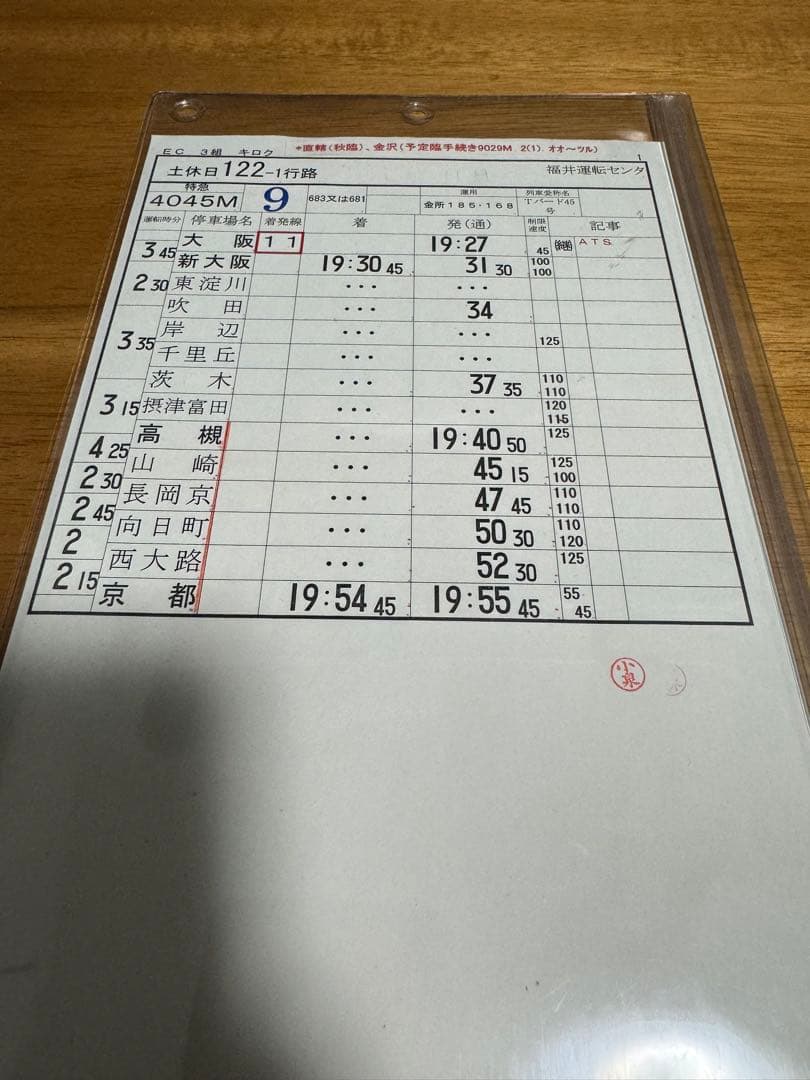 EC 3組 キロク *直轄(秋臨)、金沢(予定臨手続き9029M 2(1). オオ〜ツル) 1
土休日122-1行路 福井運転センタ
特急 4045M 9 683又は681 運用 金所185・168 列車愛称名 Tバード45号
運転時分 停車場名 着発線 着 発(通) 制限速度 記事
大阪 11 19:27 45 ATS
3 45
新大阪 19:30 45 31 30 100 100
2 30
東淀川 ・・・ ・・・
吹田 ・・・ 34
3 35
岸辺 ・・・ ・・・ 125
千里丘 ・・・ ・・・
茨木 ・・・ 37 35 110 110
3 15
摂津富田 ・・・ ・・・ 120 115
高槻 ・・・ 19:40 50 125
4 25
山崎 ・・・ 45 15 125 100
2 30
長岡京 ・・・ 47 45 110 110
2 45
向日町 ・・・ 50 30 110 120
2
西大路 ・・・ 52 30 125
2 15
京都 19:54 45 19:55 45 55 45
小泉